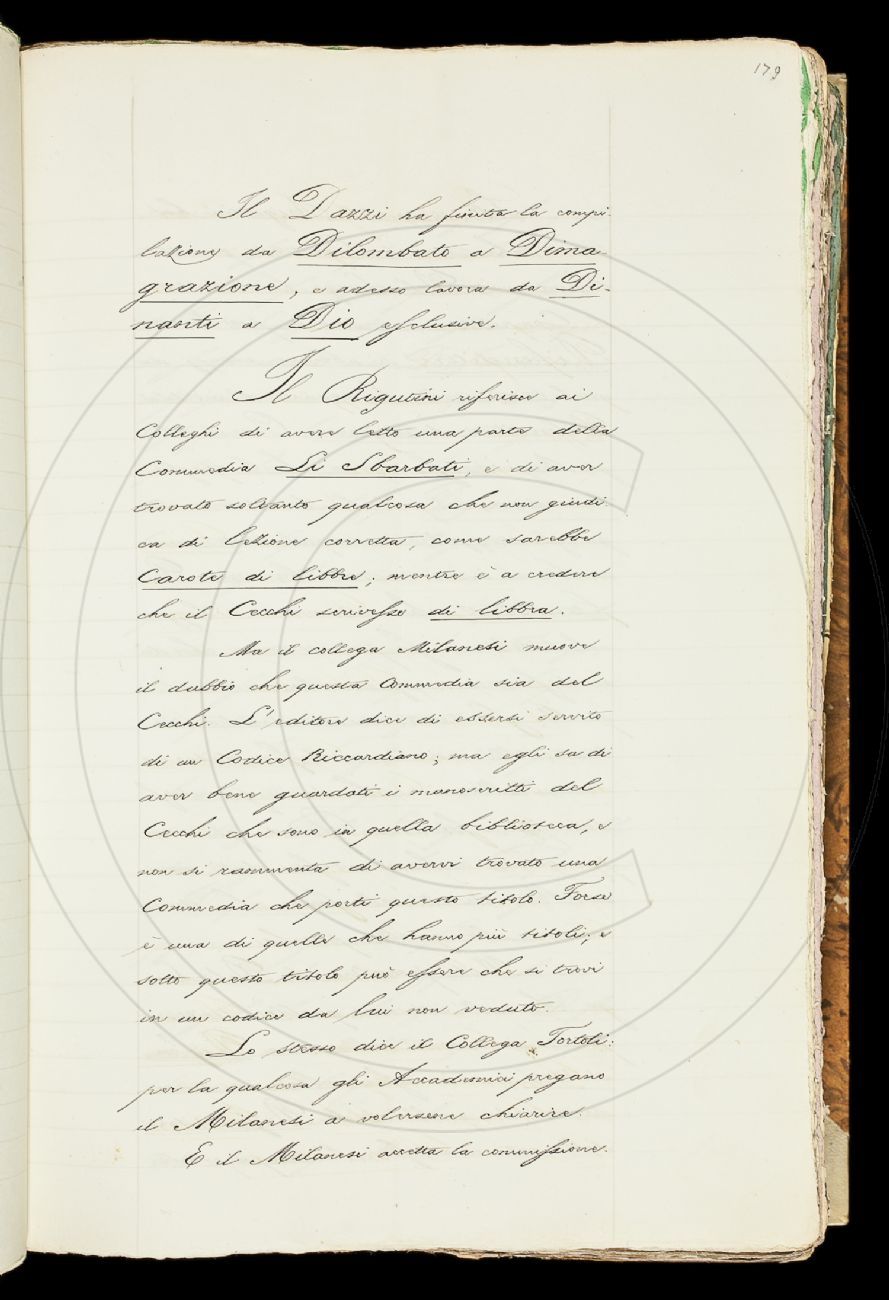 179
Il Dazzi ha finita la compi-
lazione da Dilombato a Dima-
grazione, e adesso lavora da Di-
nanti a Dio esclusive.
Il Rigutini riferisce ai
Colleghi di avere letto una parte della
Commedia Li Sbarbati, e di aver
trovato soltanto qualcosa che non giudi-
ca di lezione corretta, come sarebbe
Carote di libbre; mentre è a credere
che il Cecchi scrivesse di libbra.
Ma il collega Milanesi muove
il dubbio che questa Commedia sia del
Cecchi. L'editore dice di essersi servito
di un Codice Riccardiano; ma egli sa di
aver bene guardati i manoscritti del
Cecchi che sono in quella biblioteca, e
non si rammenta di avervi trovato una
Commedia che porti questo titolo. Forse
è una di quelle che hanno più titoli; e
sotto questo titolo può essere che si trovi
in un codice da lui non veduto.
Lo stesso dice il Collega Tortoli:
per la qualcosa gli Accademici pregano
il Milanesi a volersene chiarire.
E il Milanesi accetta la commissione.